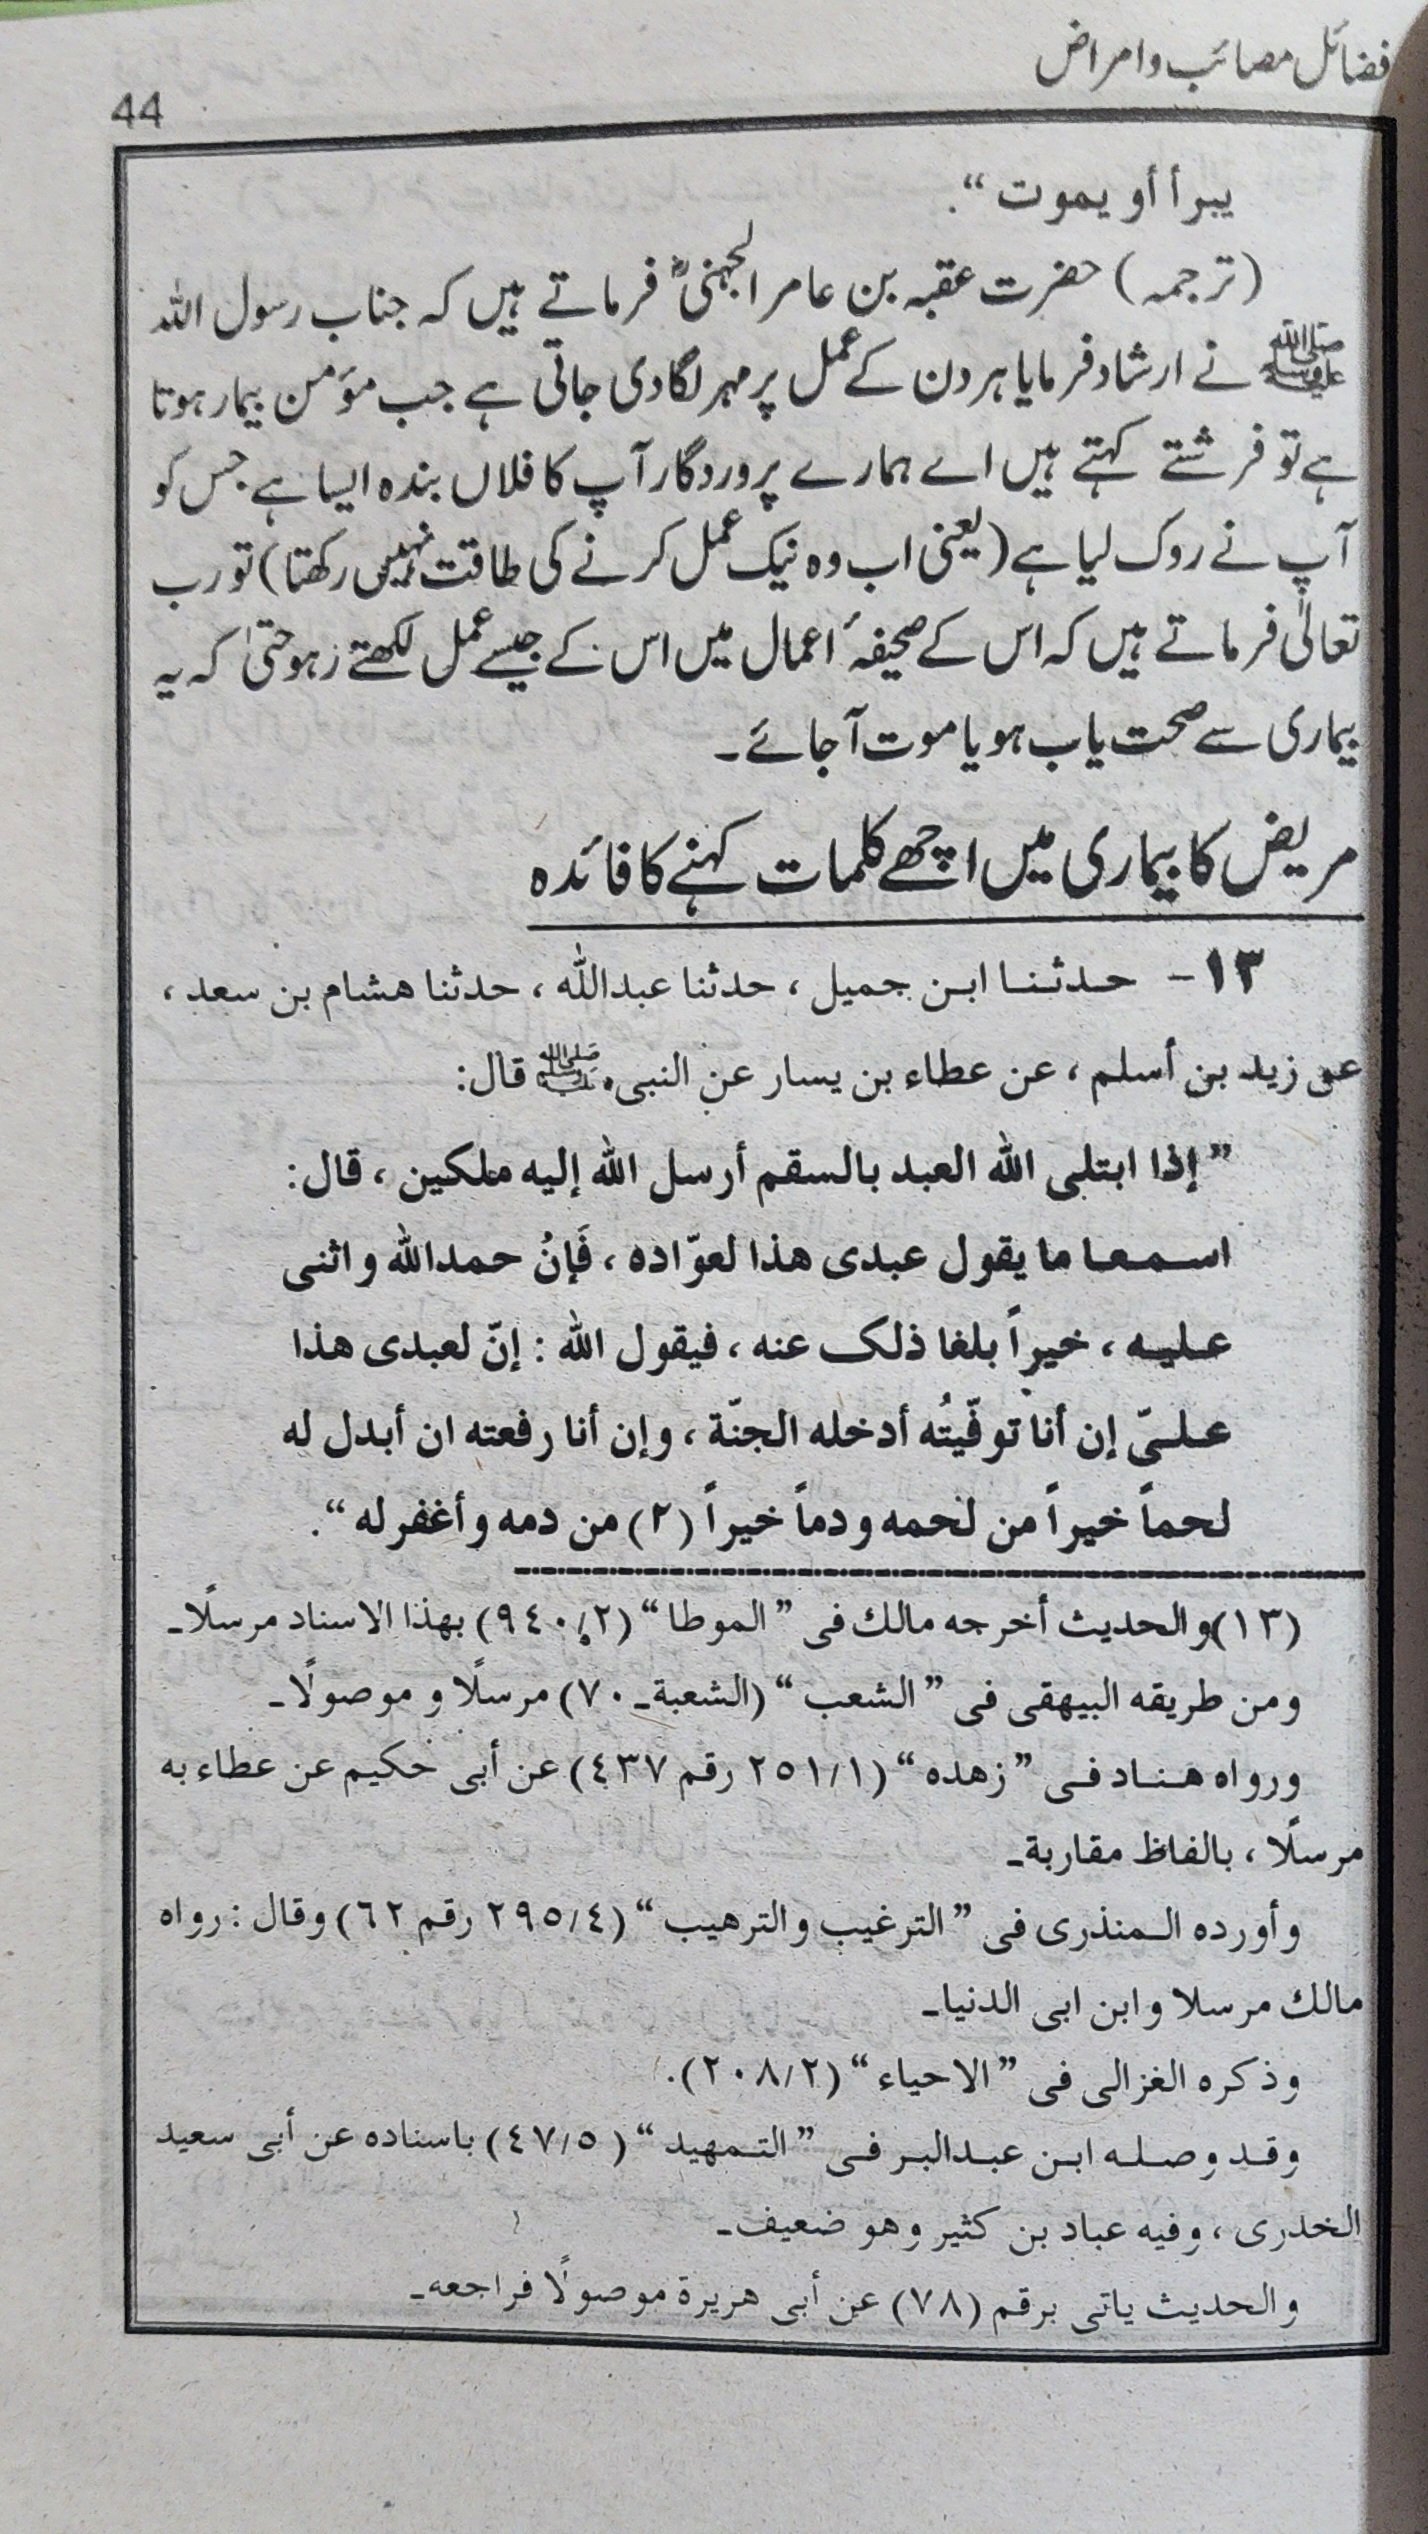 فضائل مصائب وامراض
44
يبرأ أو يموت“.
(ترجمہ) حضرت عقبہ بن عامر الجہنیؓ فرماتے ہیں کہ جناب رسول اللہ
ﷺ نے ارشاد فرمایا ہر دن کے عمل پر مہر لگا دی جاتی ہے جب مؤمن بیمار ہوتا
ہے تو فرشتے کہتے ہیں اے ہمارے پروردگار آپ کا فلاں بندہ ایسا ہے جس کو
آپ نے روک لیا ہے (یعنی اب وہ نیک عمل کرنے کی طاقت نہیں رکھتا) تو رب
تعالیٰ فرماتے ہیں کہ اس کے صحیفۂ اعمال میں اس کے جیسے عمل لکھتے رہو حتیٰ کہ یہ
بیماری سے صحت یاب ہو یا موت آ جائے۔
مریض کا بیماری میں اچھے کلمات کہنے کا فائدہ
۱۳- حدثنا ابن جميل ، حدثنا عبدالله ، حدثنا هشام بن سعد ،
عن زيد بن أسلم ، عن عطاء بن يسار عن النبى ﷺ قال:
”إذا ابتلى الله العبد بالسقم أرسل الله إليه ملكين ، قال:
اسمعا ما يقول عبدى هذا لعوّاده ، فَإنُ حمدالله واثنى
عليه ، خيراً بلغا ذلک عنه ، فيقول الله : إنّ لعبدى هذا
علىّ إن أنا توفّيتُه أدخله الجنّة ، وإن أنا رفعته ان أبدل له
لحماً خيراً من لحمه ودماً خيراً (۲) من دمه وأغفرله“.
(١٣)والحديث أخرجه مالك فى ”الموطا“ (٩٤٠/٢) بهذا الاسناد مرسلًا۔
ومن طريقه البيهقى فى ”الشعب“ (الشعبة۔ ٧٠) مرسلًا و موصولًا۔
ورواه هناد فى ”زهده“ (٢٥١/١ رقم ٤٣٧) عن أبى حكيم عن عطاء به
مرسلًا ، بالفاظ مقاربة۔
وأورده المنذرى فى ”الترغيب والترهيب“ (٢٩٥/٤ رقم ٦٢) وقال : رواه
مالك مرسلا وابن ابى الدنيا۔
وذكره الغزالى فى ”الاحياء“ (٢٠٨/٢).
وقد وصله ابن عبدالبر فى ”التمهيد“ (٤٧/٥) باسناده عن أبى سعيد
الخدرى ، وفيه عباد بن كثير وهو ضعيف۔
والحديث ياتى برقم (٧٨) عن أبى هريرة موصولًا فراجعه۔